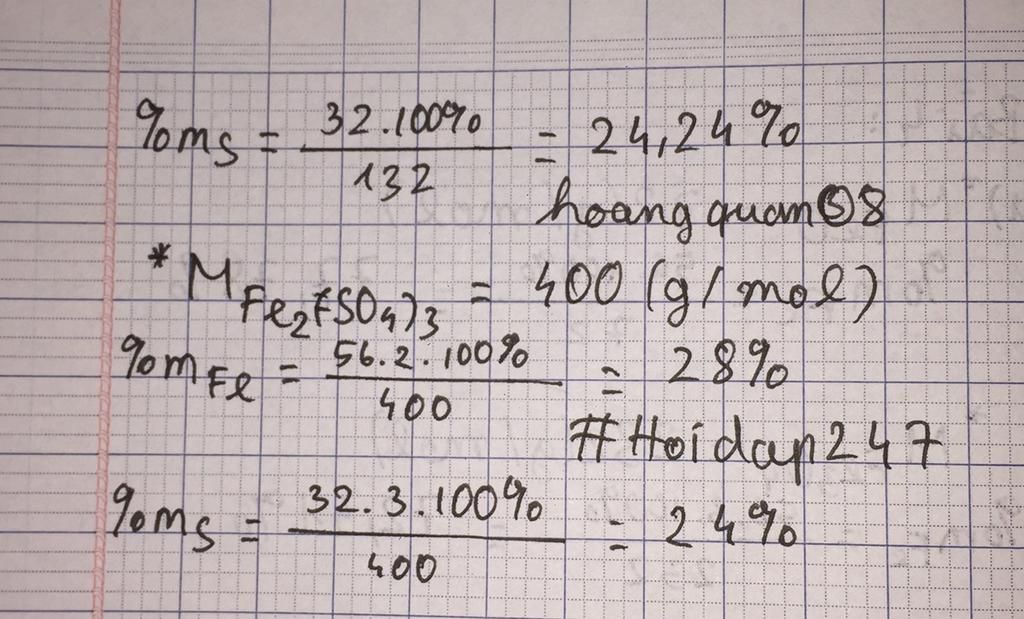 %mS = 32.100% / 132 = 24,24%
hoangquan08
* MFe2(SO4)3 = 400 (g/mol)
%mFe = 56.2.100% / 400 = 28%
#Hoidap247
%mS = 32.3.100% / 400 = 24%